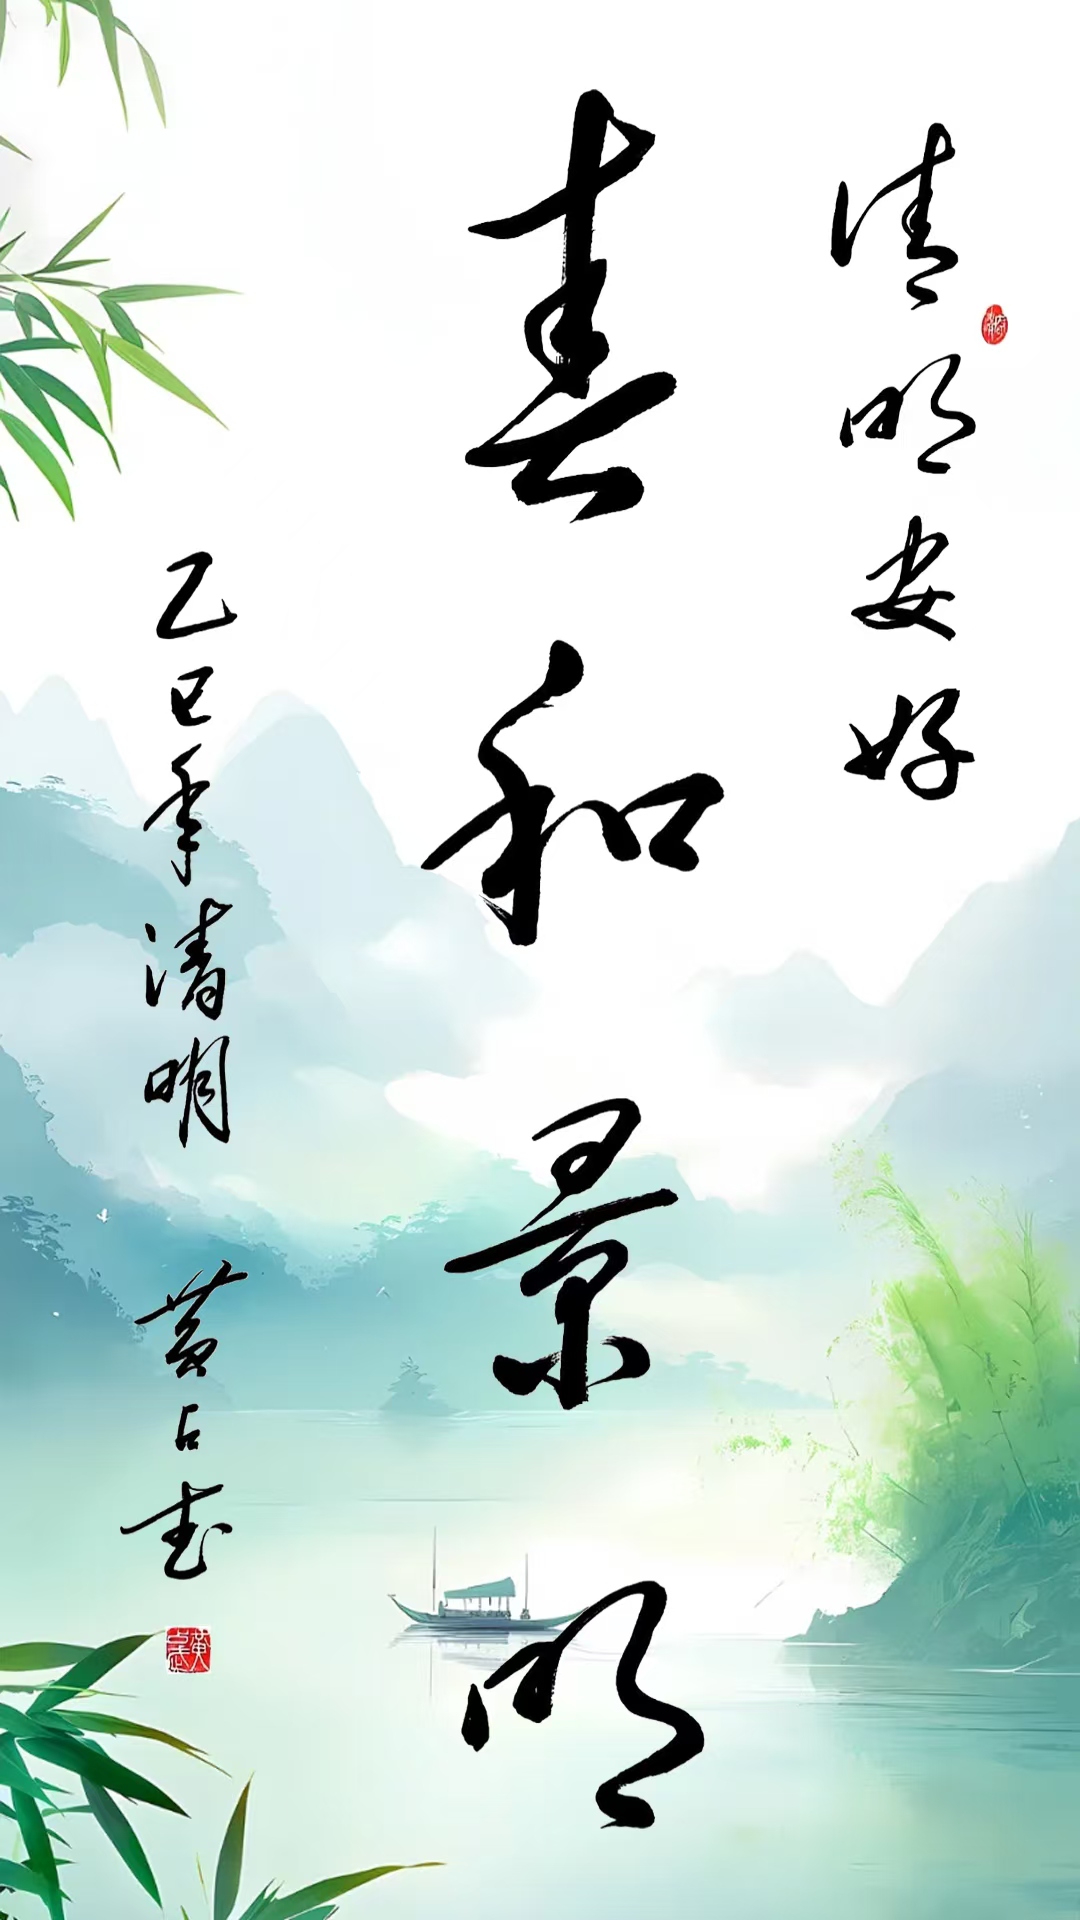 清明安好
春和景明
乙巳年清明
黄占武